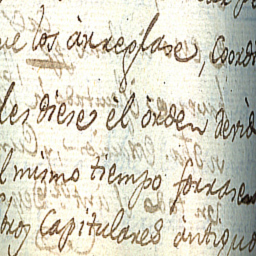 que los àrreglase, Coordi
les diese èl òrden devid
l mismo tiempo formasen
tros Capitulares àntiguo